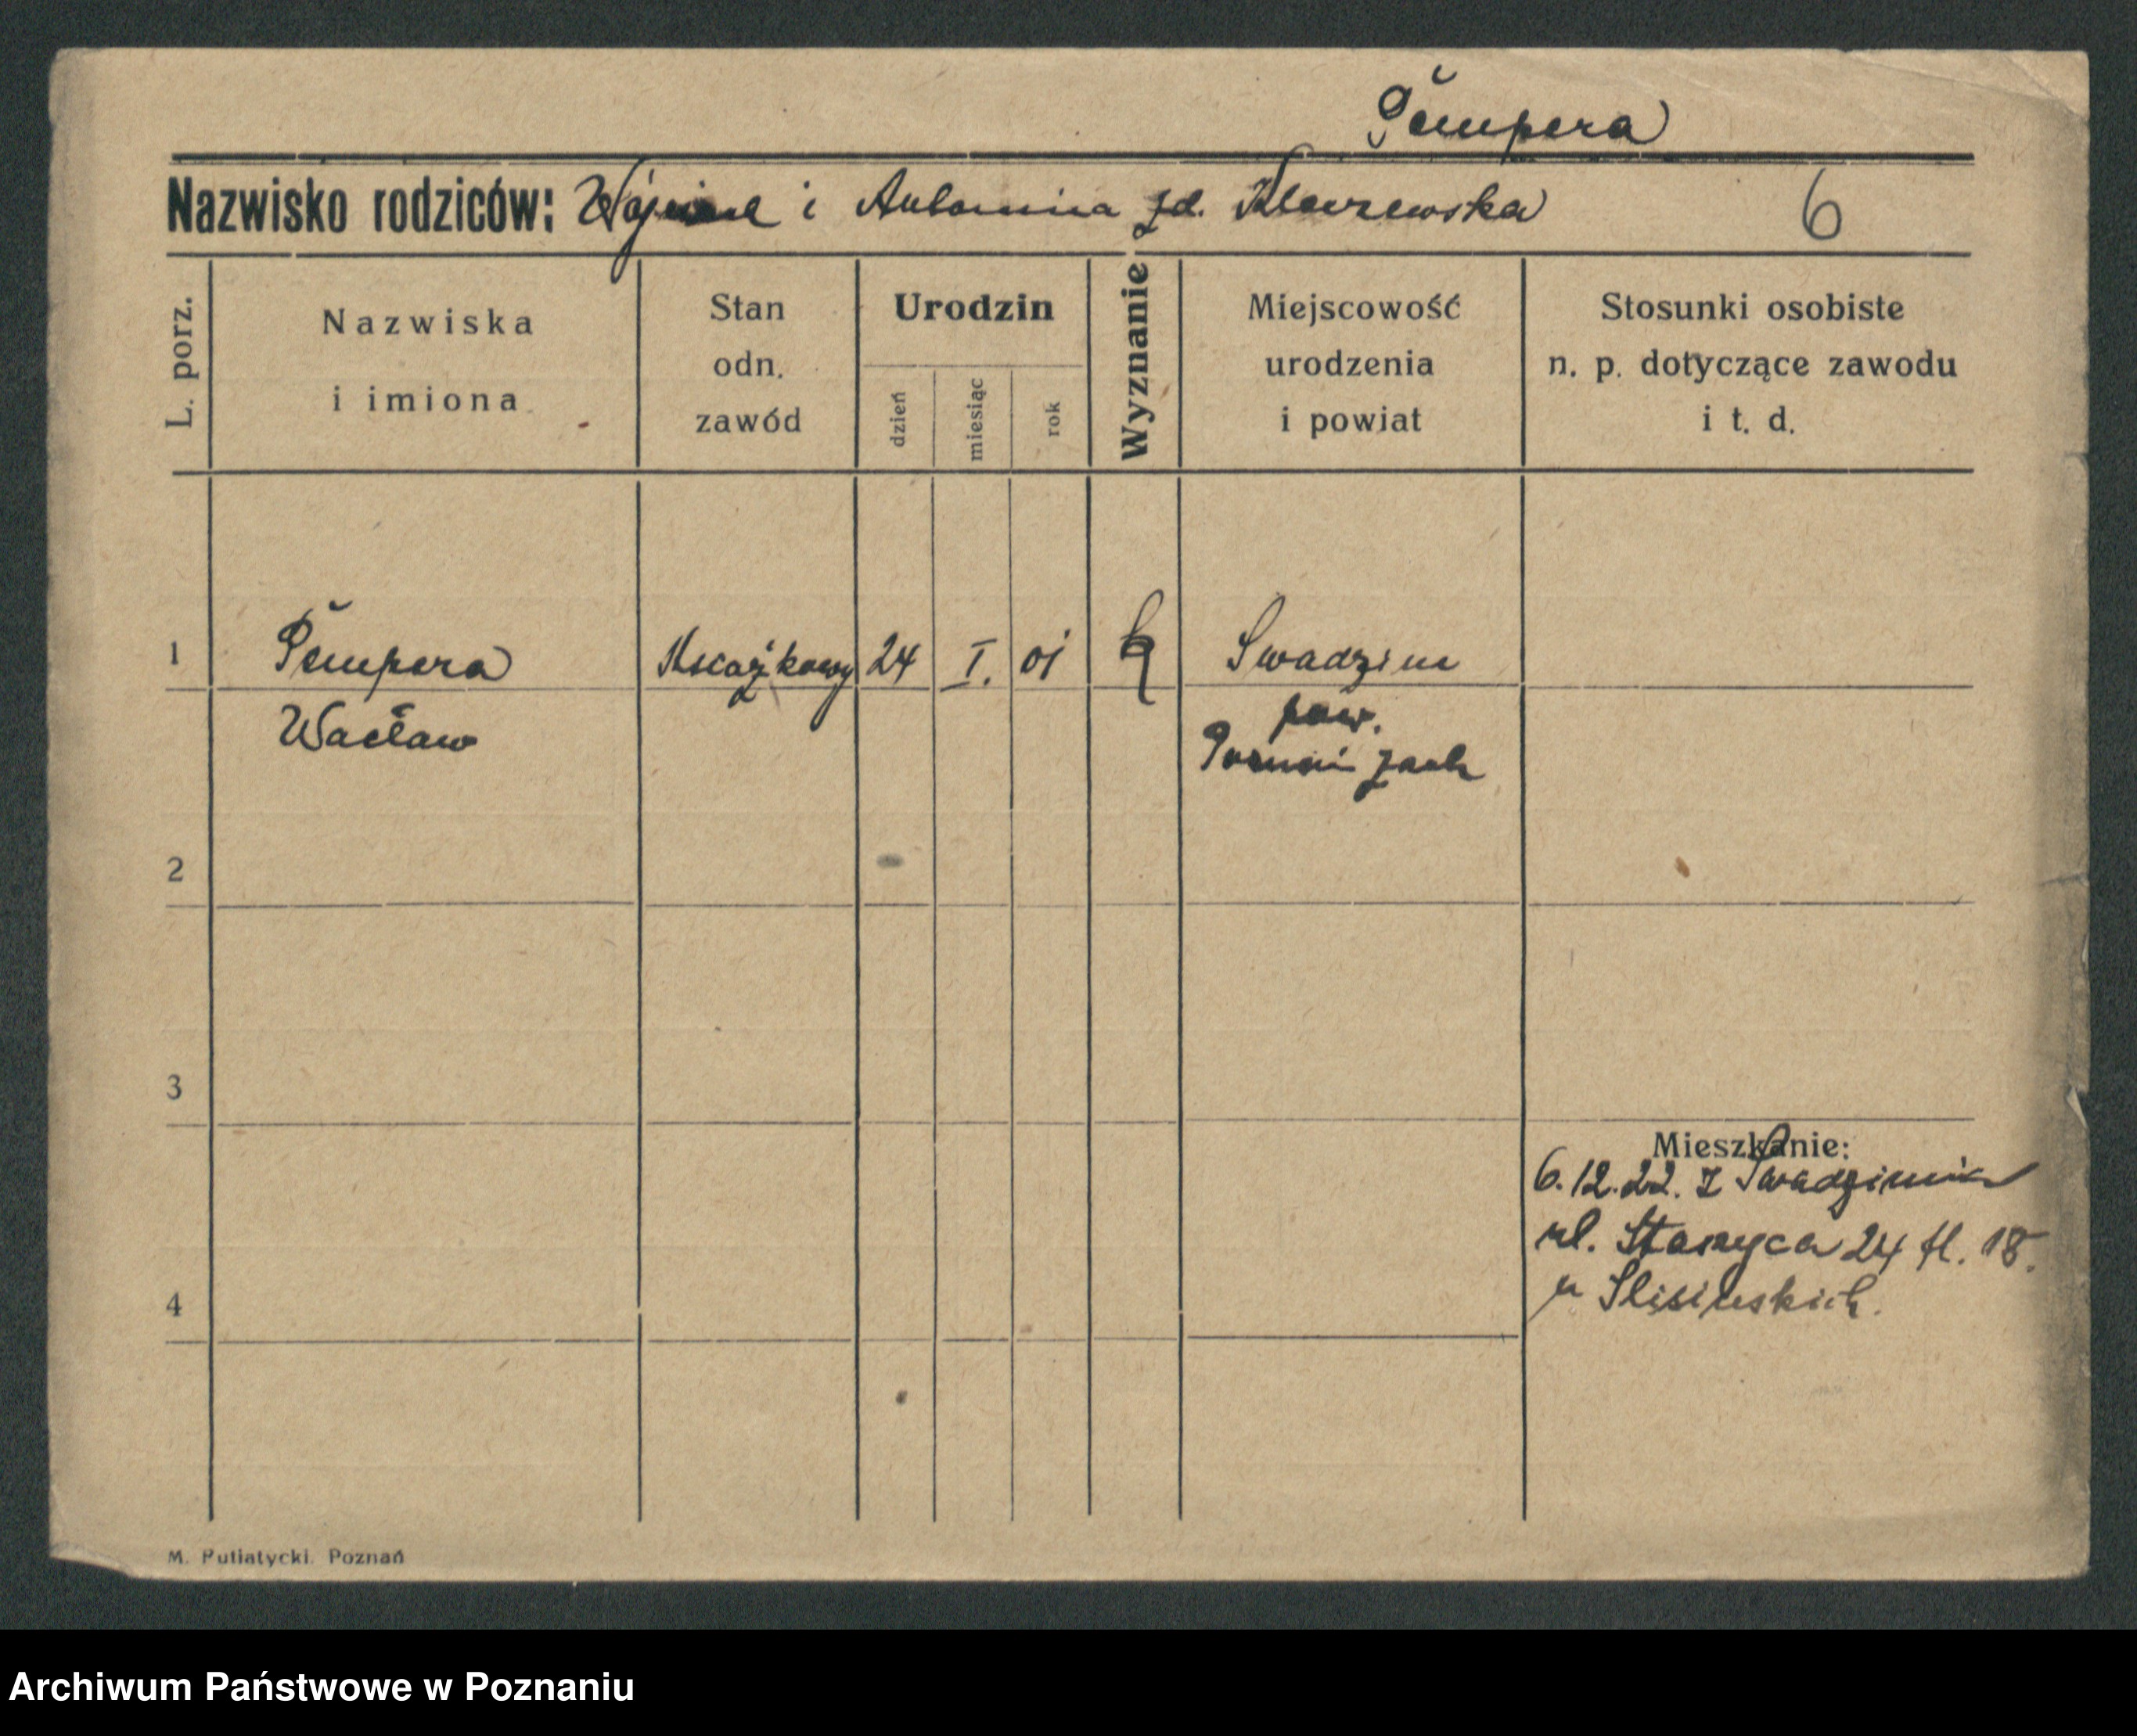 Pempera
Nazwisko rodziców: i Antonina zd. 6
L. porz.
Nazwiska
i imiona
Stan
odn.
zawód
Urodzin
dzień
miesiąc
rok
Wyznanie
Miejscowość
urodzenia
i powiat
Stosunki osobiste
n. p. dotyczące zawodu
i t. d.
1 Pempera 24 I. 01 Swadzim
Wacław pow.
Poznań zach
2
3
4
Mieszkanie:
6.12.22. z
ul. Staszyca 24 18.
u
M. Putiatycki. Poznań
Archiwum Państwowe w Poznaniu